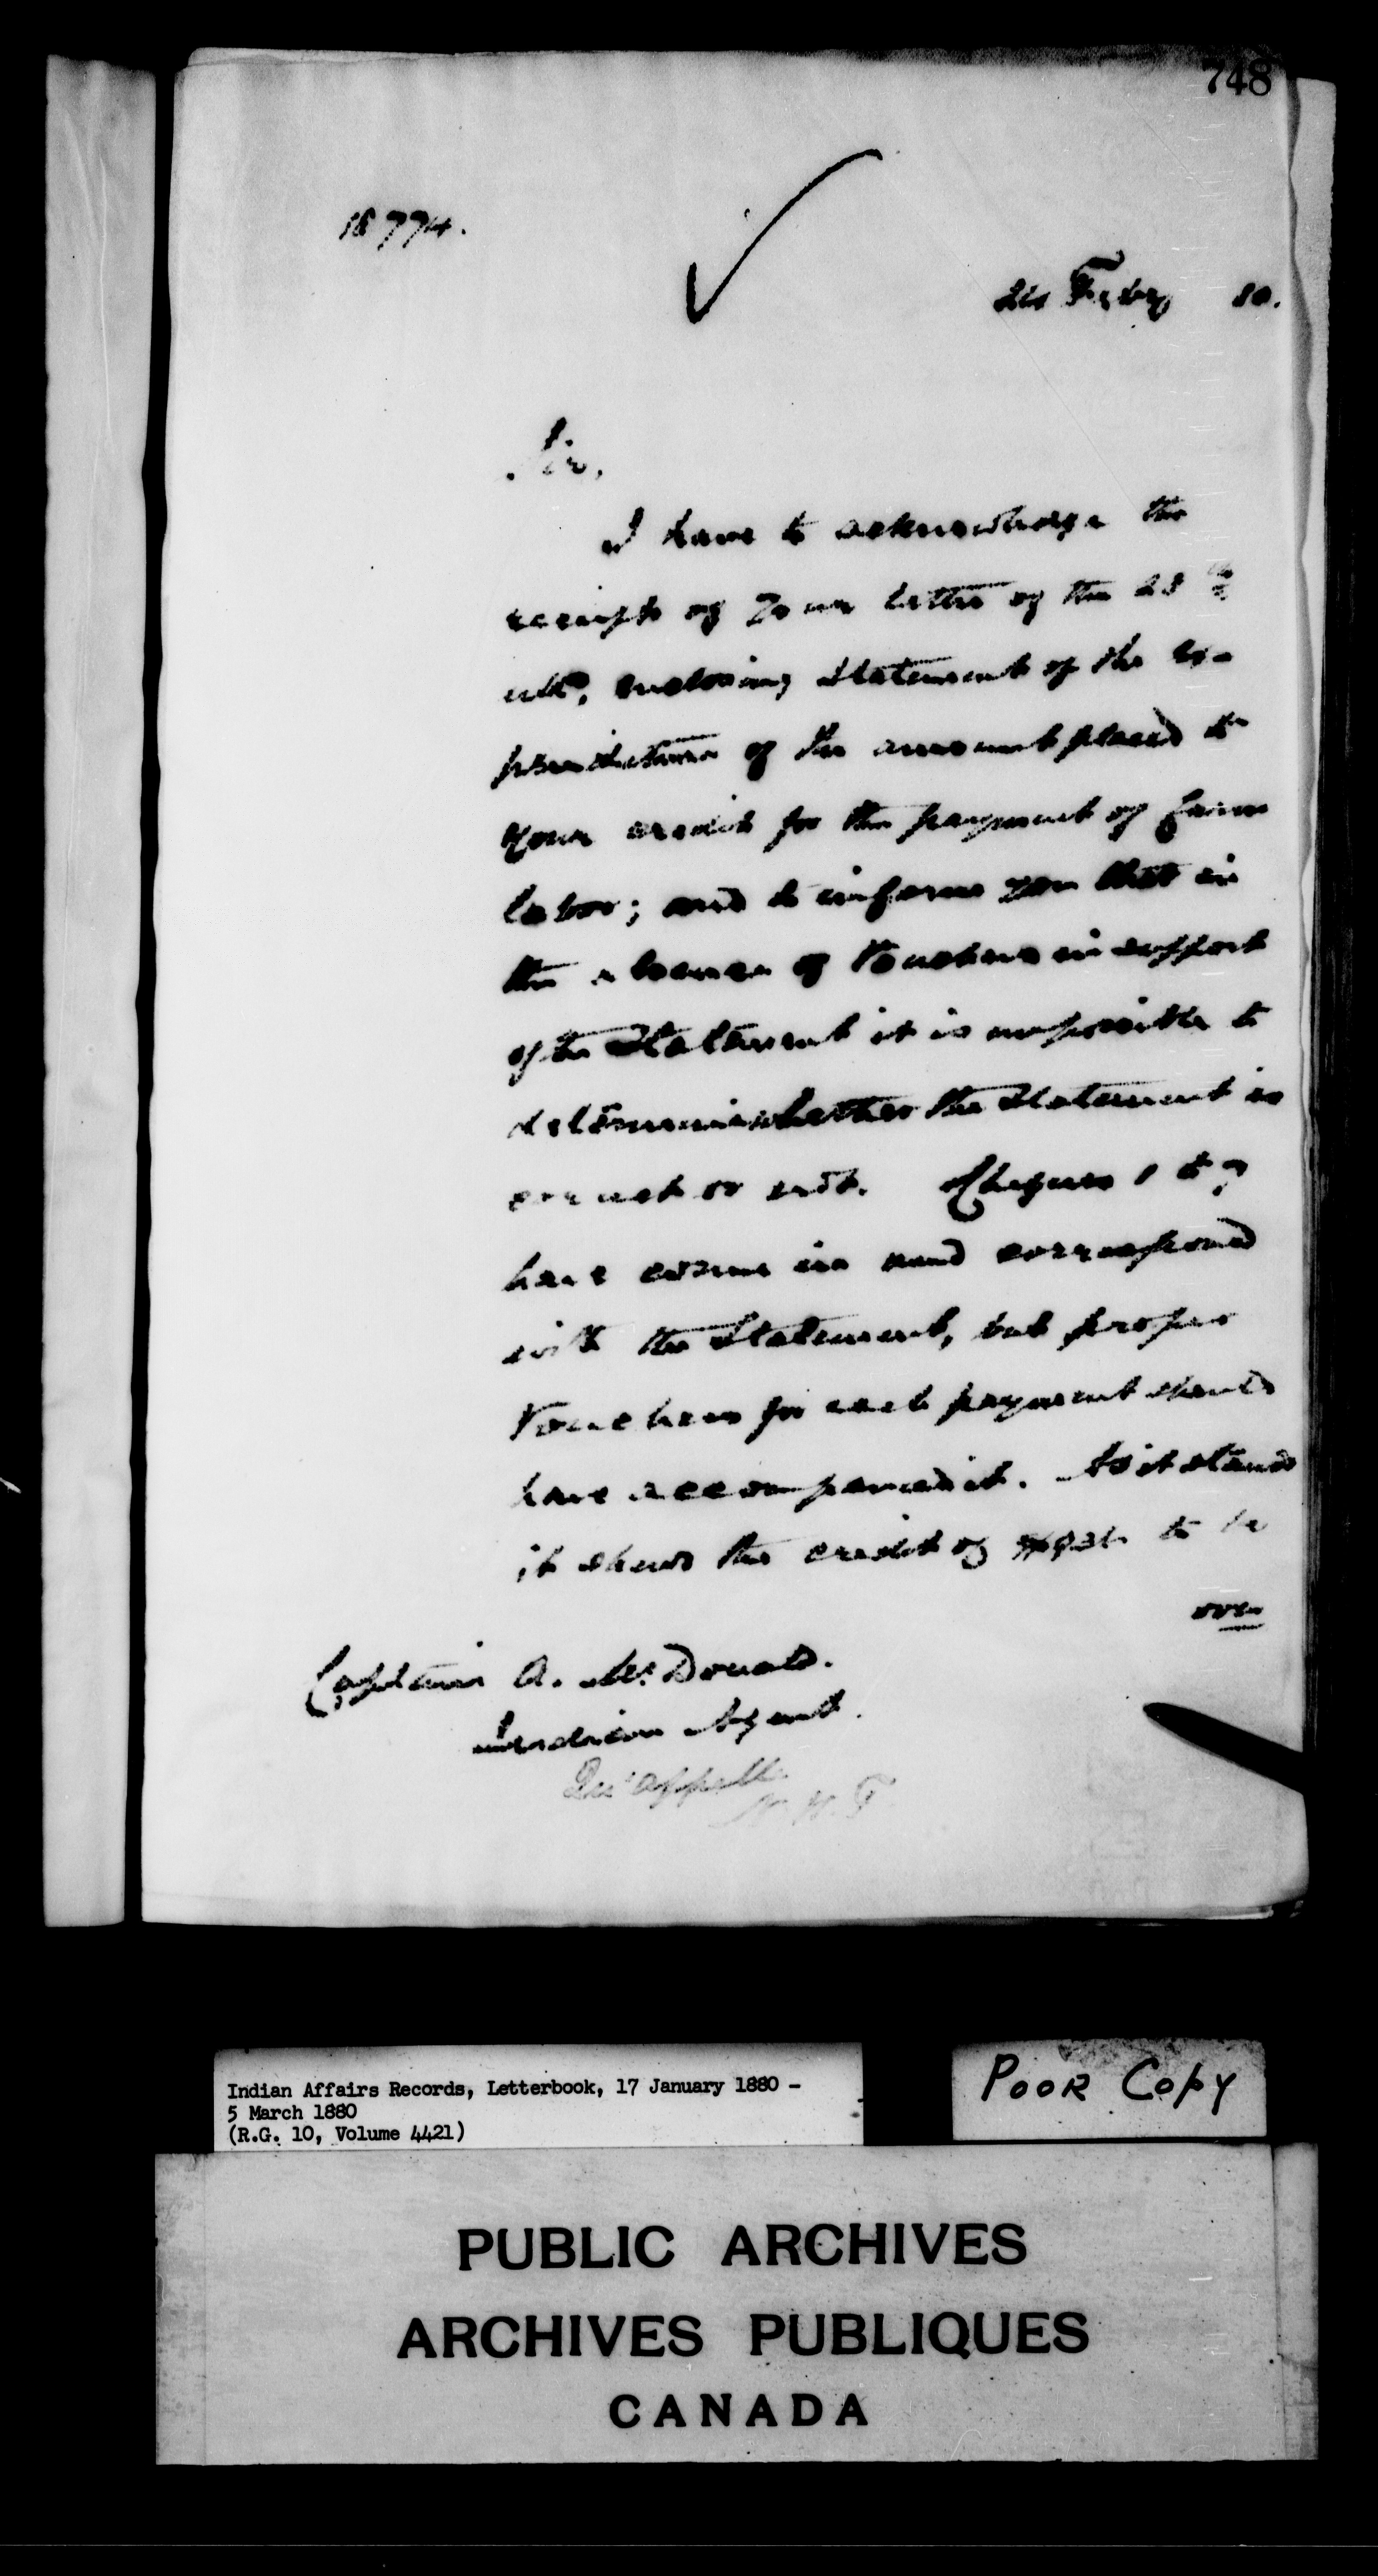 748
18774.
Feby 80.
Sir,
I have to acknowledge the
receipt of your letter of the 23rd
ulto, enclosing Statement of the ex-
penditure of the amount placed to
your credit for the payment of Farm
labor; and to inform you that in
the absence of Vouchers in support
of the Statement it is impossible to
determine whether the Statement is
correct or not. Cheques 1 to 7
have come in and correspond
with the Statement, but proper
Vouchers for each payment should
have accompanied it. As it stands
it shews the credit of to be
over
Captain A. McDonald.
Indian Agent.
Qu'Appelle
N.W.T.
Indian Affairs Records, Letterbook, 17 January 1880 -
5 March 1880
(R.G. 10, Volume 4421)
POOR COPY
PUBLIC ARCHIVES
ARCHIVES PUBLIQUES
CANADA